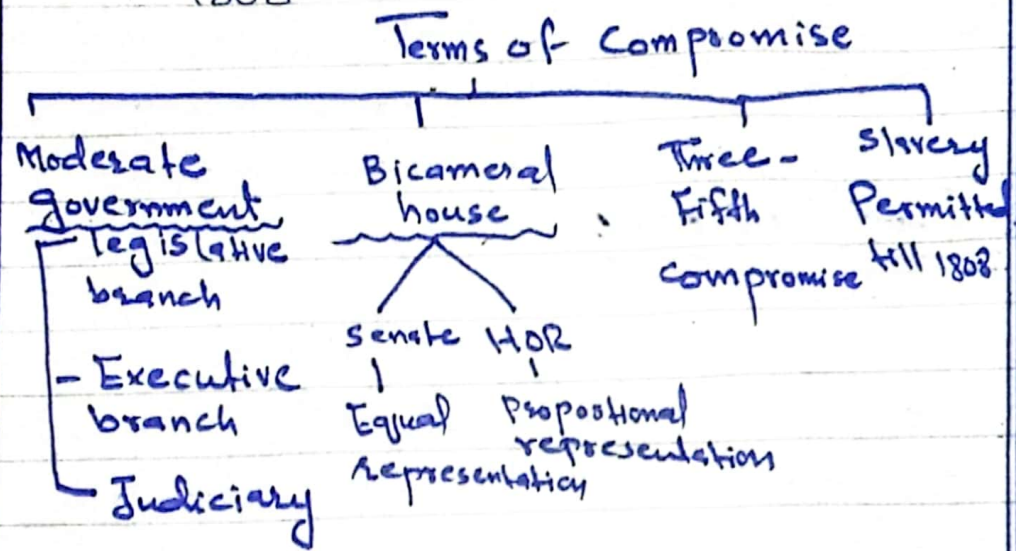 Terms of Compromise
Moderate
government
legislative
branch
- Executive
branch
- Judiciary
Bicameral
house
Senate HOR
Equal
representation
Proportional
representation
Three-
Fifth
compromise
Slavery
Permitted
till 1808